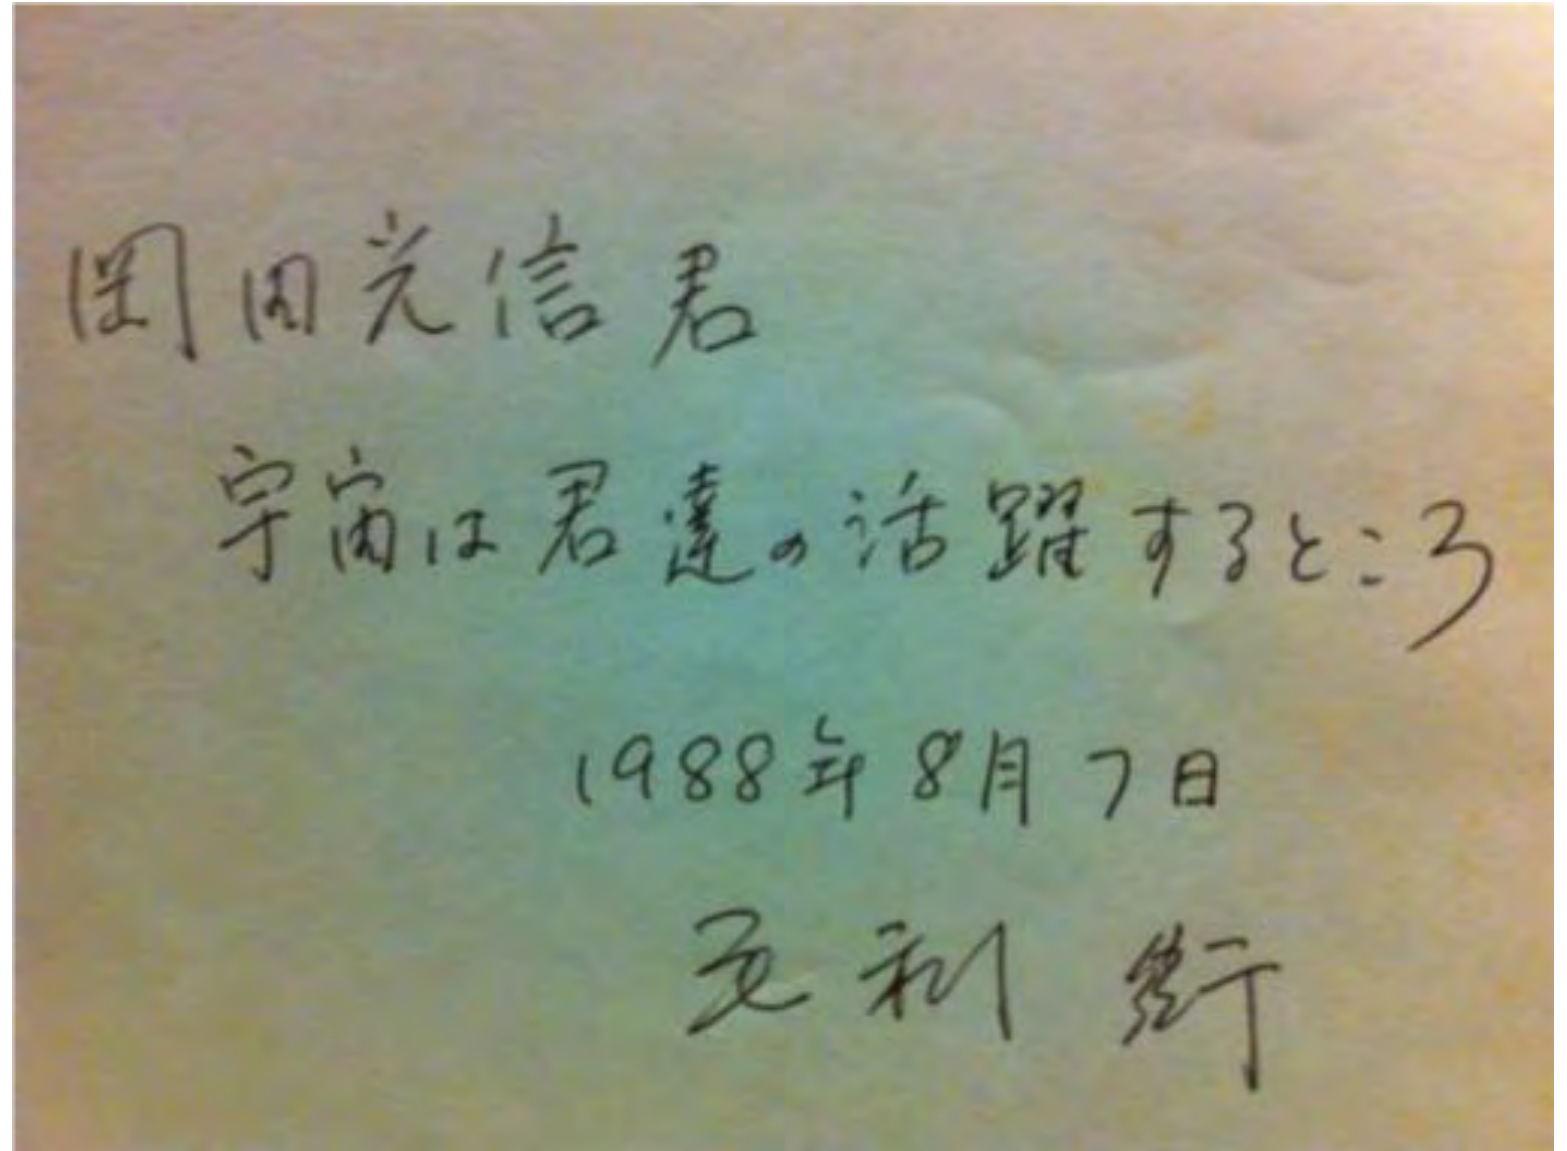 岡田光信君
宇宙は君達の活躍するところ
1988年8月7日
毛利 衛